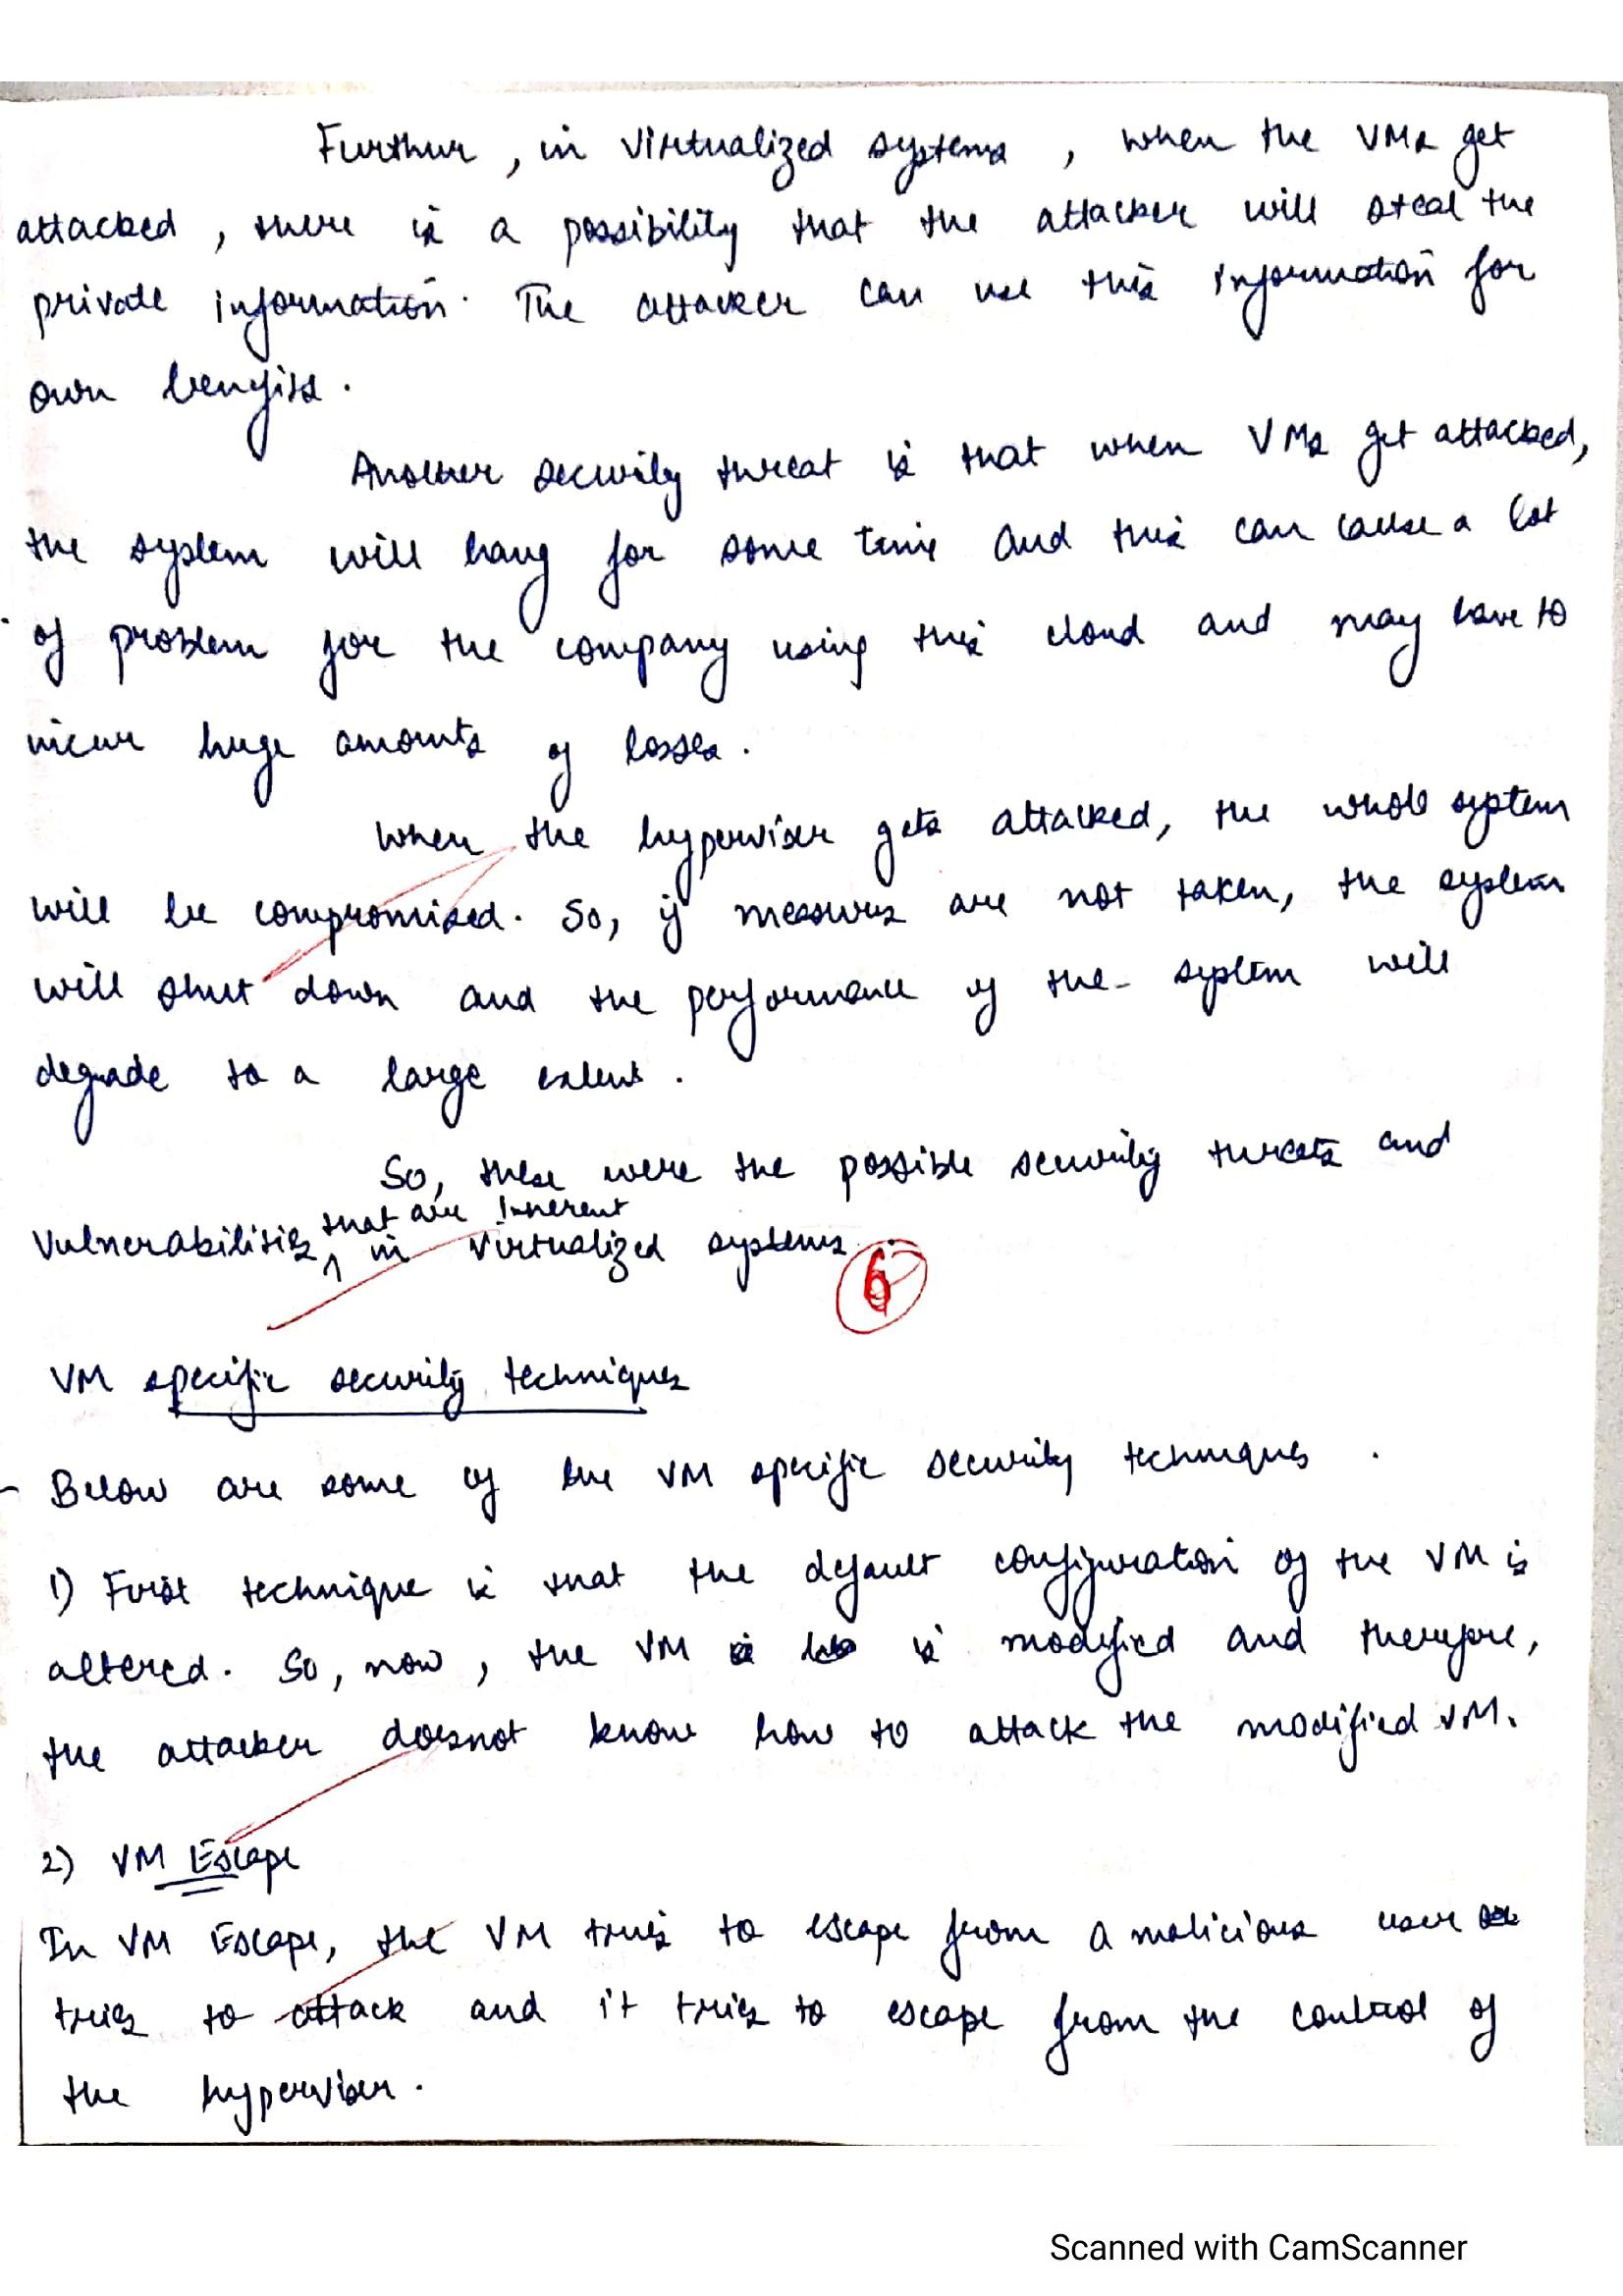 Further, in virtualized systems, when the VMs get
attacked, there is a possibility that the attacker will steal the
private information. The attacker can use this information for
own benefits.
Another security threat is that when VMs get attacked,
the system will hang for some time and this can cause a lot
of problem for the company using this cloud and may have to
incur huge amounts of losses.
When the hypervisor gets attacked, the whole system
will be compromised. So, if measures are not taken, the system
will shut down and the performance of the system will
degrade to a large extent.
So, these were the possible security threats and
that are inherent
Vulnerabilities in virtualized systems.
6
VM specific security techniques
Below are some of the VM specific security techniques.
1) First technique is that the default configuration of the VM is
altered. So, now, the VM is modified and therefore,
the attacker doesnot know how to attack the modified VM.
2) VM Escape
In VM Escape, the VM tries to escape from a malicious user
tries to attack and it tries to escape from the control of
the hypervisor.
Scanned with CamScanner